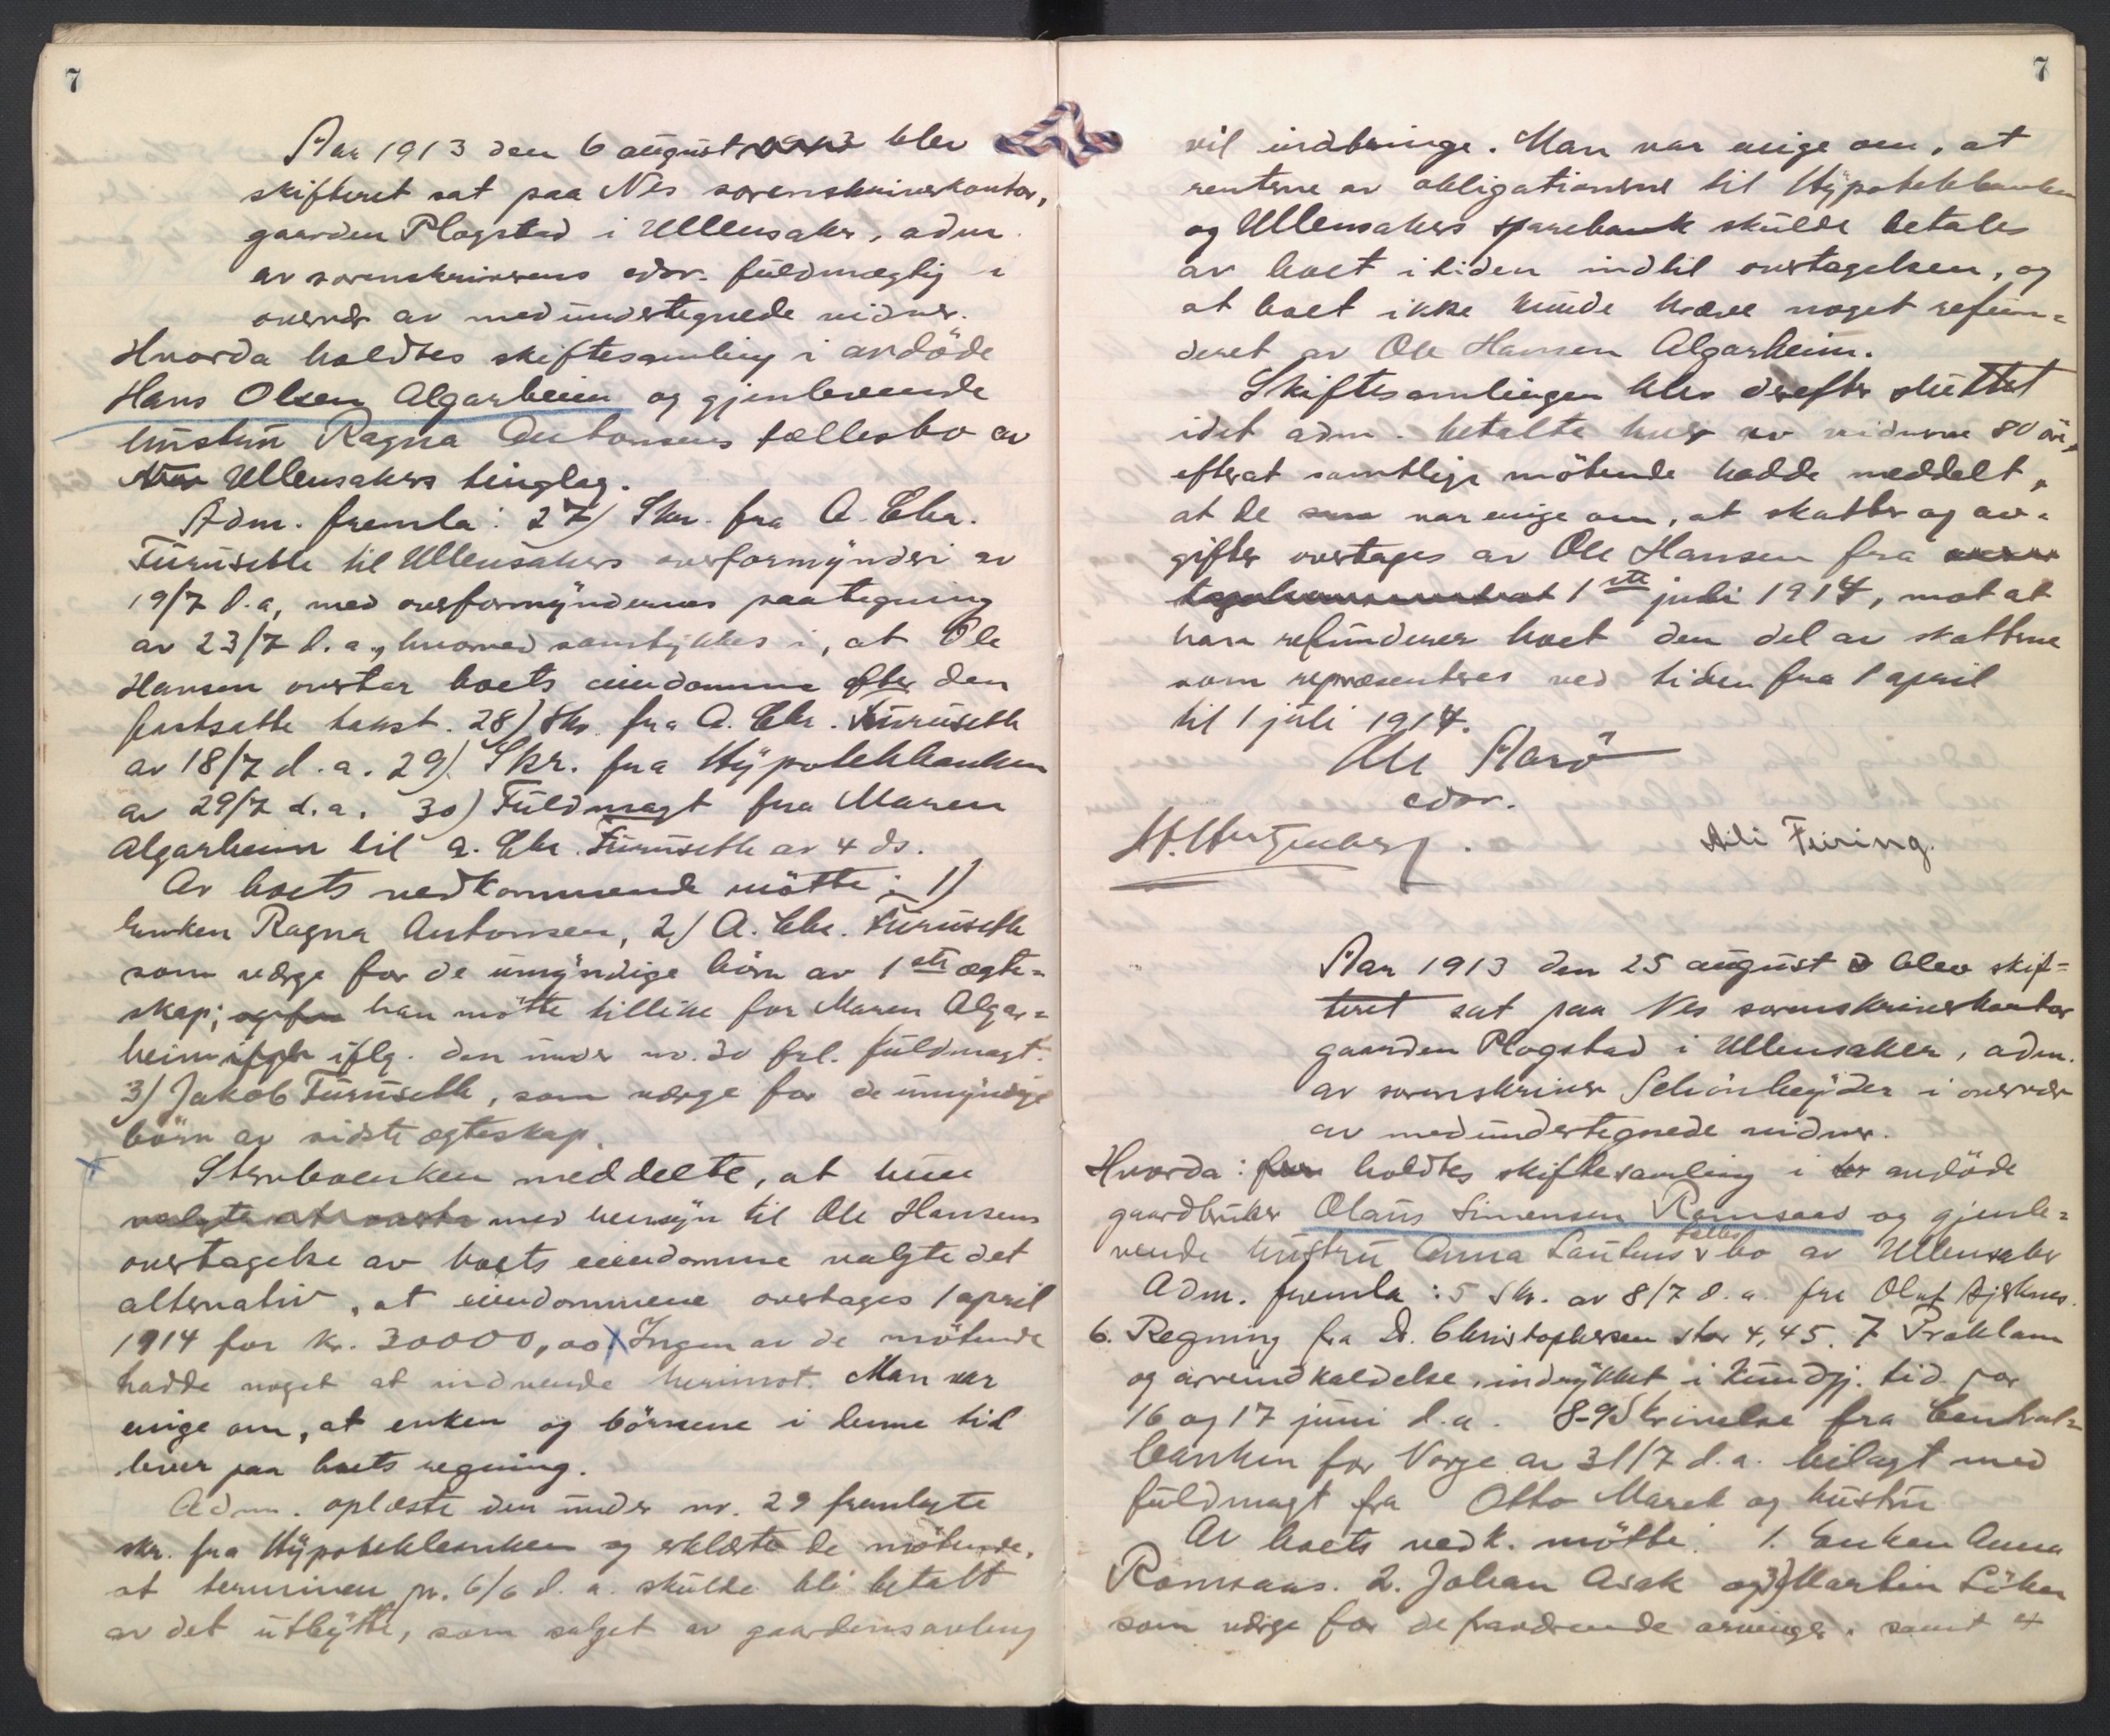 7
Aar 1913 den 6 august blev
skifteret sat paa Nes sorenskriverkontor,
gaarden Plogstad i Ullensaker, adm.
av sorenskriverens edsv. fuldmægtig i
overvær av medundertegnede vidner.
Hvorda holdtes skiftesamling i avdöde
Hans Olsen Algarheim og gjenlevende
hustru Ragna Antonsens fællesbo av
Ullensakers tinglag.
Adm. fremla: 27) Skr. fra A. Chr.
Furuseth til Ullensakers overformynderi av
19/7 d.a, med overformyndernes paategning
av 23/7 d.a., hvorved samtykkes i, at Ole
Hansen overtar boets eiendomme efter den
fastsatte takst. 28) Skr. fra A. Chr. Furuseth
av 18/7 d.a. 29) Skr. fra Hypotekbanken
av 29/7 d.a. 30) Fuldmagt fra Maren
Algarheim til A. Chr. Furuseth av 4 ds.
Av boets vedkommende mötte: 1)
Enken Ragna Antonsen, 2) A. Chr. Furuseth
som værge for de umyndige börn av 1ste ægte=
skap; og for han mötte tillike for Maren Algar=
heim ifølg. den under nr. 30 frl. fuldmagt.
3) Jakob Furuseth, som værge for de umyndige
börn av sidste ægteskap.
Stervboenken meddelte, at hun
valgte at med hensyn til Ole Hansens
overtagelse av boets eiendomme valgte det
alternativ, at eiendommene overtages 1 april
1914 for kr. 30000,00 Ingen av de mötende
hadde noget at indvende herimot. Man var
enige om, at enken og börnene i denne tid
lever paa boets regning.
Adm. oplæste den under nr. 29 fremlagte
skr. fra Hypotekbanken og erklærte de mötende,
at terminen pr. 6/6 d.a. skulde bli betalt
av det utbytte, som salget av gaardens avling
7
vil indbringe. Man var enige om, at
renterne av obligationene til Hypotekbanken
og Ullensakers sparebank skulde betales
av boet i tiden indtil overtagelsen, og
at boet ikke kunde kræve noget refun=
deret av Ole Hansen Algarheim.
Skiftesamlingen blev derefter sluttet
idet adm. betalte hver av vidnerne 80 öre,
efterat samtlige mötende hadde meddelt,
at de var enige om, at skatter og av=
gifter overtages av Ole Hansen fra
1ste juli 1914, mot at
han refunderer boet den del av skatterne
som repræsenteres ved tiden fra 1 april
til 1 juli 1914.
Ole Aarö
edsv.
Aili Feiring.
Aar 1913 den 25 august blev skif=
teret sat paa Nes sorenskriverkontor
gaarden Plogstad i Ullensaker, adm.
av sorenskriver Schönheyder i overvær
av medundertegnede vidner.
Hvorda: holdtes skiftesamling i avdöde
gaardbruker Olaus Simensen Ramsaas og gjenle=
vende hustru Anna Lauhus fælles bo av Ullensaker
Adm. fremla: 5 Skr. av 8/7 d.a. fra Olaf
6. Regning fra D. Christophersen stor 4,45. 7 Proklam
og arveindkaldelse, indrykket i kundgj. tid. for
16 og 17 juni d.a. 8-9 Skrivelse fra Central=
banken for Norge av 31/7 d.a. bilagt med
fuldmagt fra Otto Marek og hustru
Av boets vedk. mötte: 1. Enken Anna
Ramsaas. 2. Johan Asak og 3) Martin Löken
som værge for de fraværende arvinger, samt 4